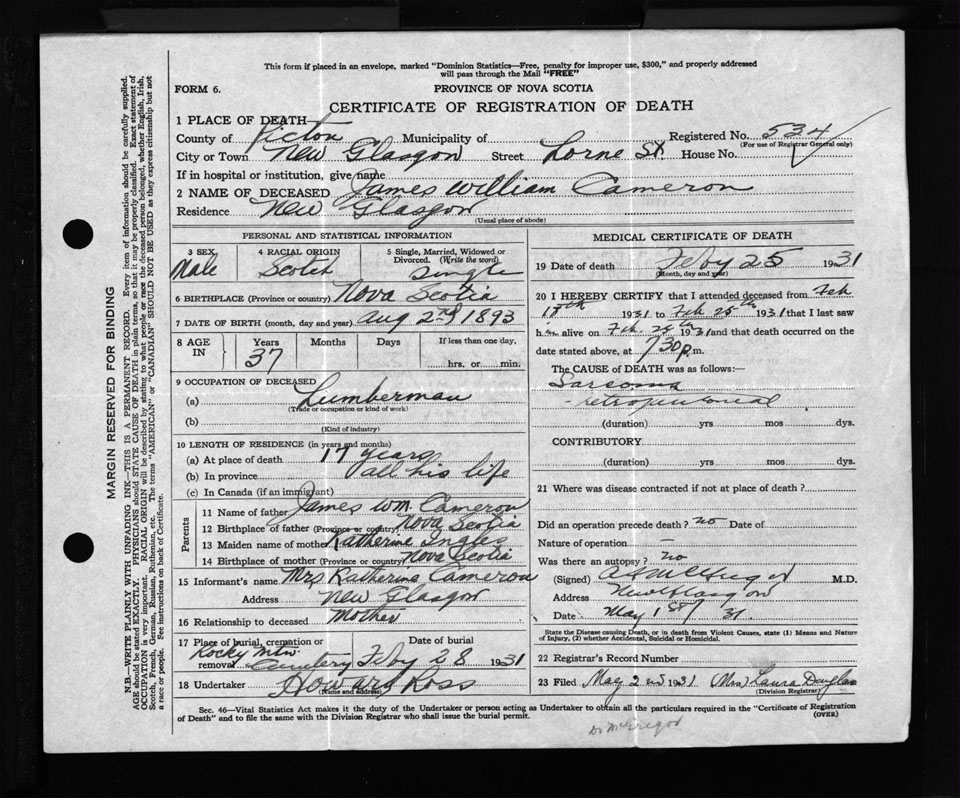 This form if placed in an envelope, marked "Dominion Statistics—Free, penalty for improper use, $300," and properly addressed
will pass through the Mail "FREE"
FORM 6.
PROVINCE OF NOVA SCOTIA
CERTIFICATE OF REGISTRATION OF DEATH
1 PLACE OF DEATH
County of Pictou Municipality of Registered No. 534
(For use of Registrar General only)
City or Town New Glasgow Street Lorne St. House No.
If in hospital or institution, give name
2 NAME OF DECEASED James William Cameron
Residence New Glasgow
(Usual place of abode)
PERSONAL AND STATISTICAL INFORMATION
3 SEX 4 RACIAL ORIGIN 5 Single, Married, Widowed or
Divorced. (Write the word)
Male Scotch Single
6 BIRTHPLACE (Province or country) Nova Scotia
7 DATE OF BIRTH (month, day and year) Aug 2nd 1893
8 AGE IN Years Months Days If less than one day,
37 hrs. or min.
9 OCCUPATION OF DECEASED
(a) Lumberman
(Trade or occupation or kind of work)
(b)
(Kind of industry)
10 LENGTH OF RESIDENCE (in years and months)
(a) At place of death 17 years
(b) In province all his life
(c) In Canada (if an immigrant)
Parents
11 Name of father James Wm. Cameron
12 Birthplace of father (Province or country) Nova Scotia
13 Maiden name of mother Katherine Ingles
14 Birthplace of mother (Province or country) Nova Scotia
15 Informant's name Mrs Katherine Cameron
Address New Glasgow
16 Relationship to deceased Mother
17 Place of burial, cremation or Date of burial
removal Rocky Mtn. Cemetery Feby 28 1931
18 Undertaker Howard Ross
(Name and address)
MEDICAL CERTIFICATE OF DEATH
19 Date of death Feby 25 1931
(Month, day and year)
20 I HEREBY CERTIFY that I attended deceased from Feb
1931 to Feb 25th 1931 that I last saw
him alive on Feb 1931 and that death occurred on
date stated above, at 7 30 p.m.
The CAUSE of DEATH was as follows:—
Sarcoma
- retroperitoneal
(duration) yrs mos dys.
CONTRIBUTORY
(duration) yrs. mos. dys.
21 Where was disease contracted if not at place of death?
Did an operation precede death? no Date of
Nature of operation —
Was there an autopsy? no
(Signed) M.D.
Address New Glasgow
Date May 1st 31.
State the Disease causing Death, or in death from Violent Causes, state (1) Means and Nature
of Injury, (2) whether Accidental, Suicidal or Homicidal.
22 Registrar's Record Number
23 Filed May 2nd 1931 (Mrs) Laura Douglas
(Division Registrar)
Sec. 46—Vital Statistics Act makes it the duty of the Undertaker or person acting as Undertaker to obtain all the particulars required in the "Certificate of Registration
of Death" and to file the same with the Division Registrar who shall issue the burial permit.
(OVER)
Dr McGregor
MARGIN RESERVED FOR BINDING
N.B.—WRITE PLAINLY WITH UNFADING INK—THIS IS A PERMANENT RECORD. Every item of information should be carefully supplied.
AGE should be stated EXACTLY. PHYSICIANS should STATE CAUSE OF DEATH in plain terms, so that it may be properly classified. Exact statement of
OCCUPATION is very important. RACIAL ORIGIN will be described by stating to what people or race the deceased person belonged, whether English, Irish,
Scotch, French, German, Russian, Ruthenian, etc. The terms "AMERICAN" or "CANADIAN" SHOULD NOT BE USED as they express citizenship but not
a race or people. See instructions on back of Certificate.